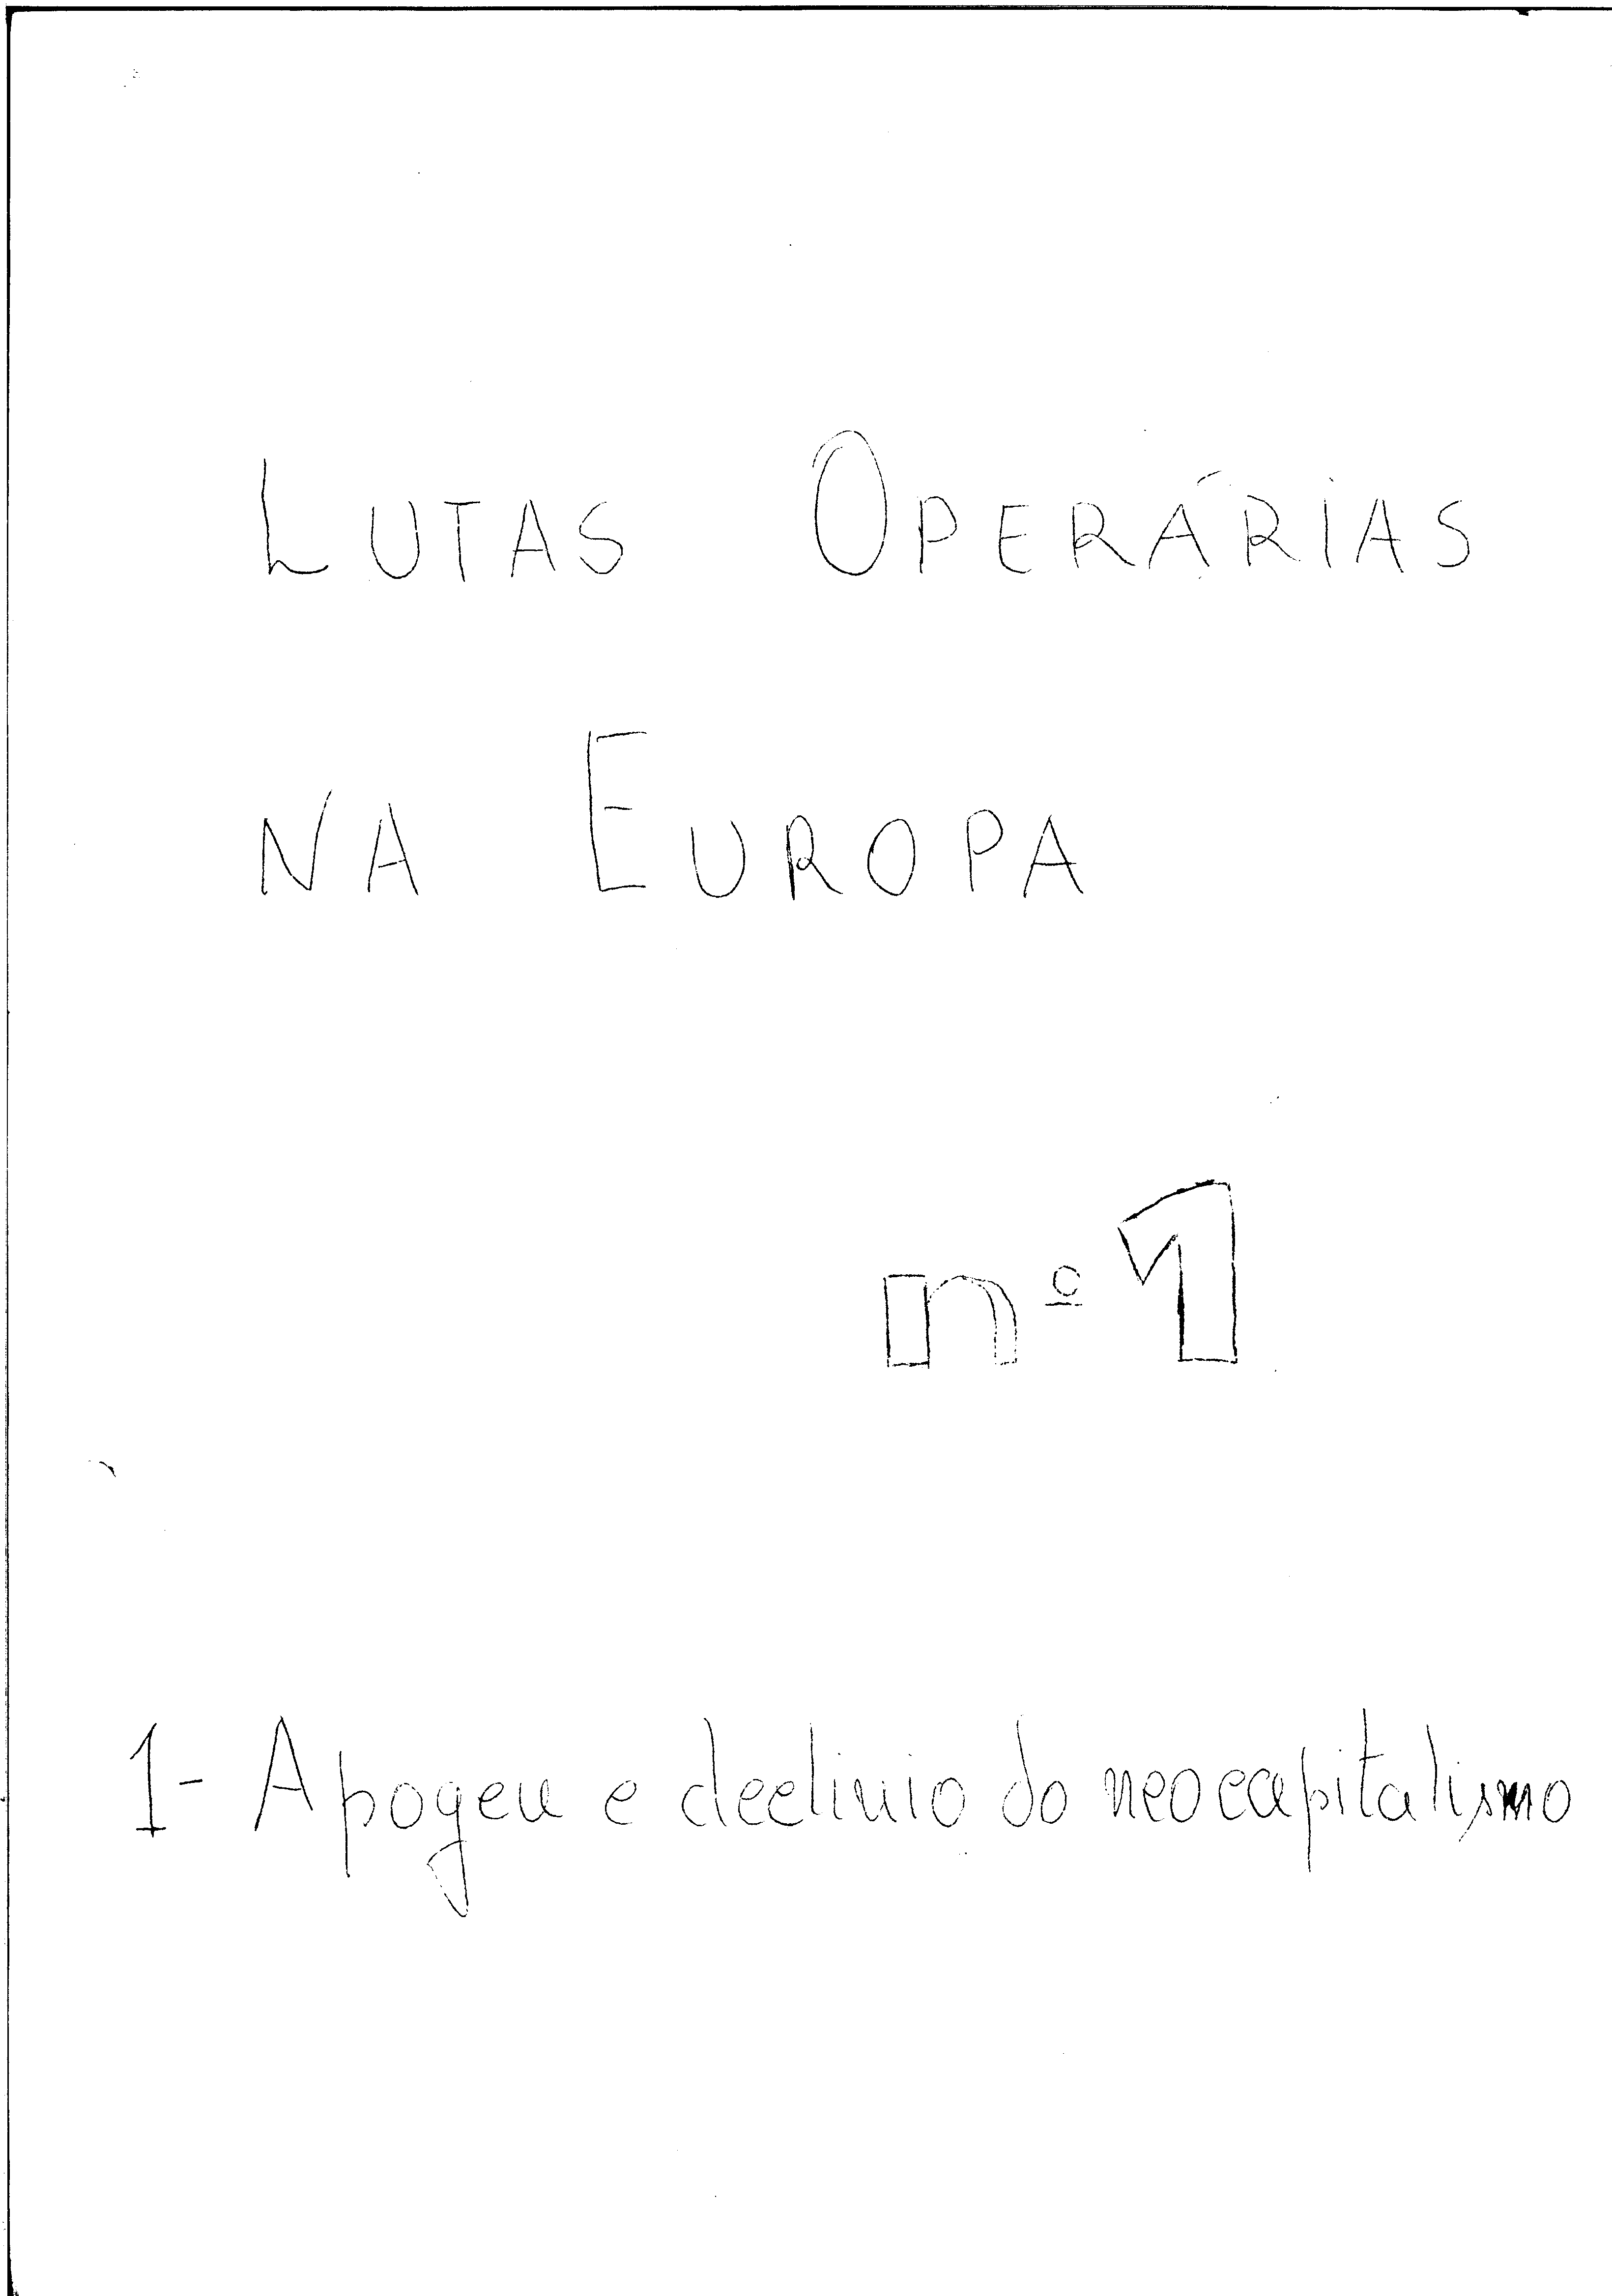 LUTAS OPERÁRIAS
NA EUROPA
nº1
1- Apogeu e declinio do neocapitalismo